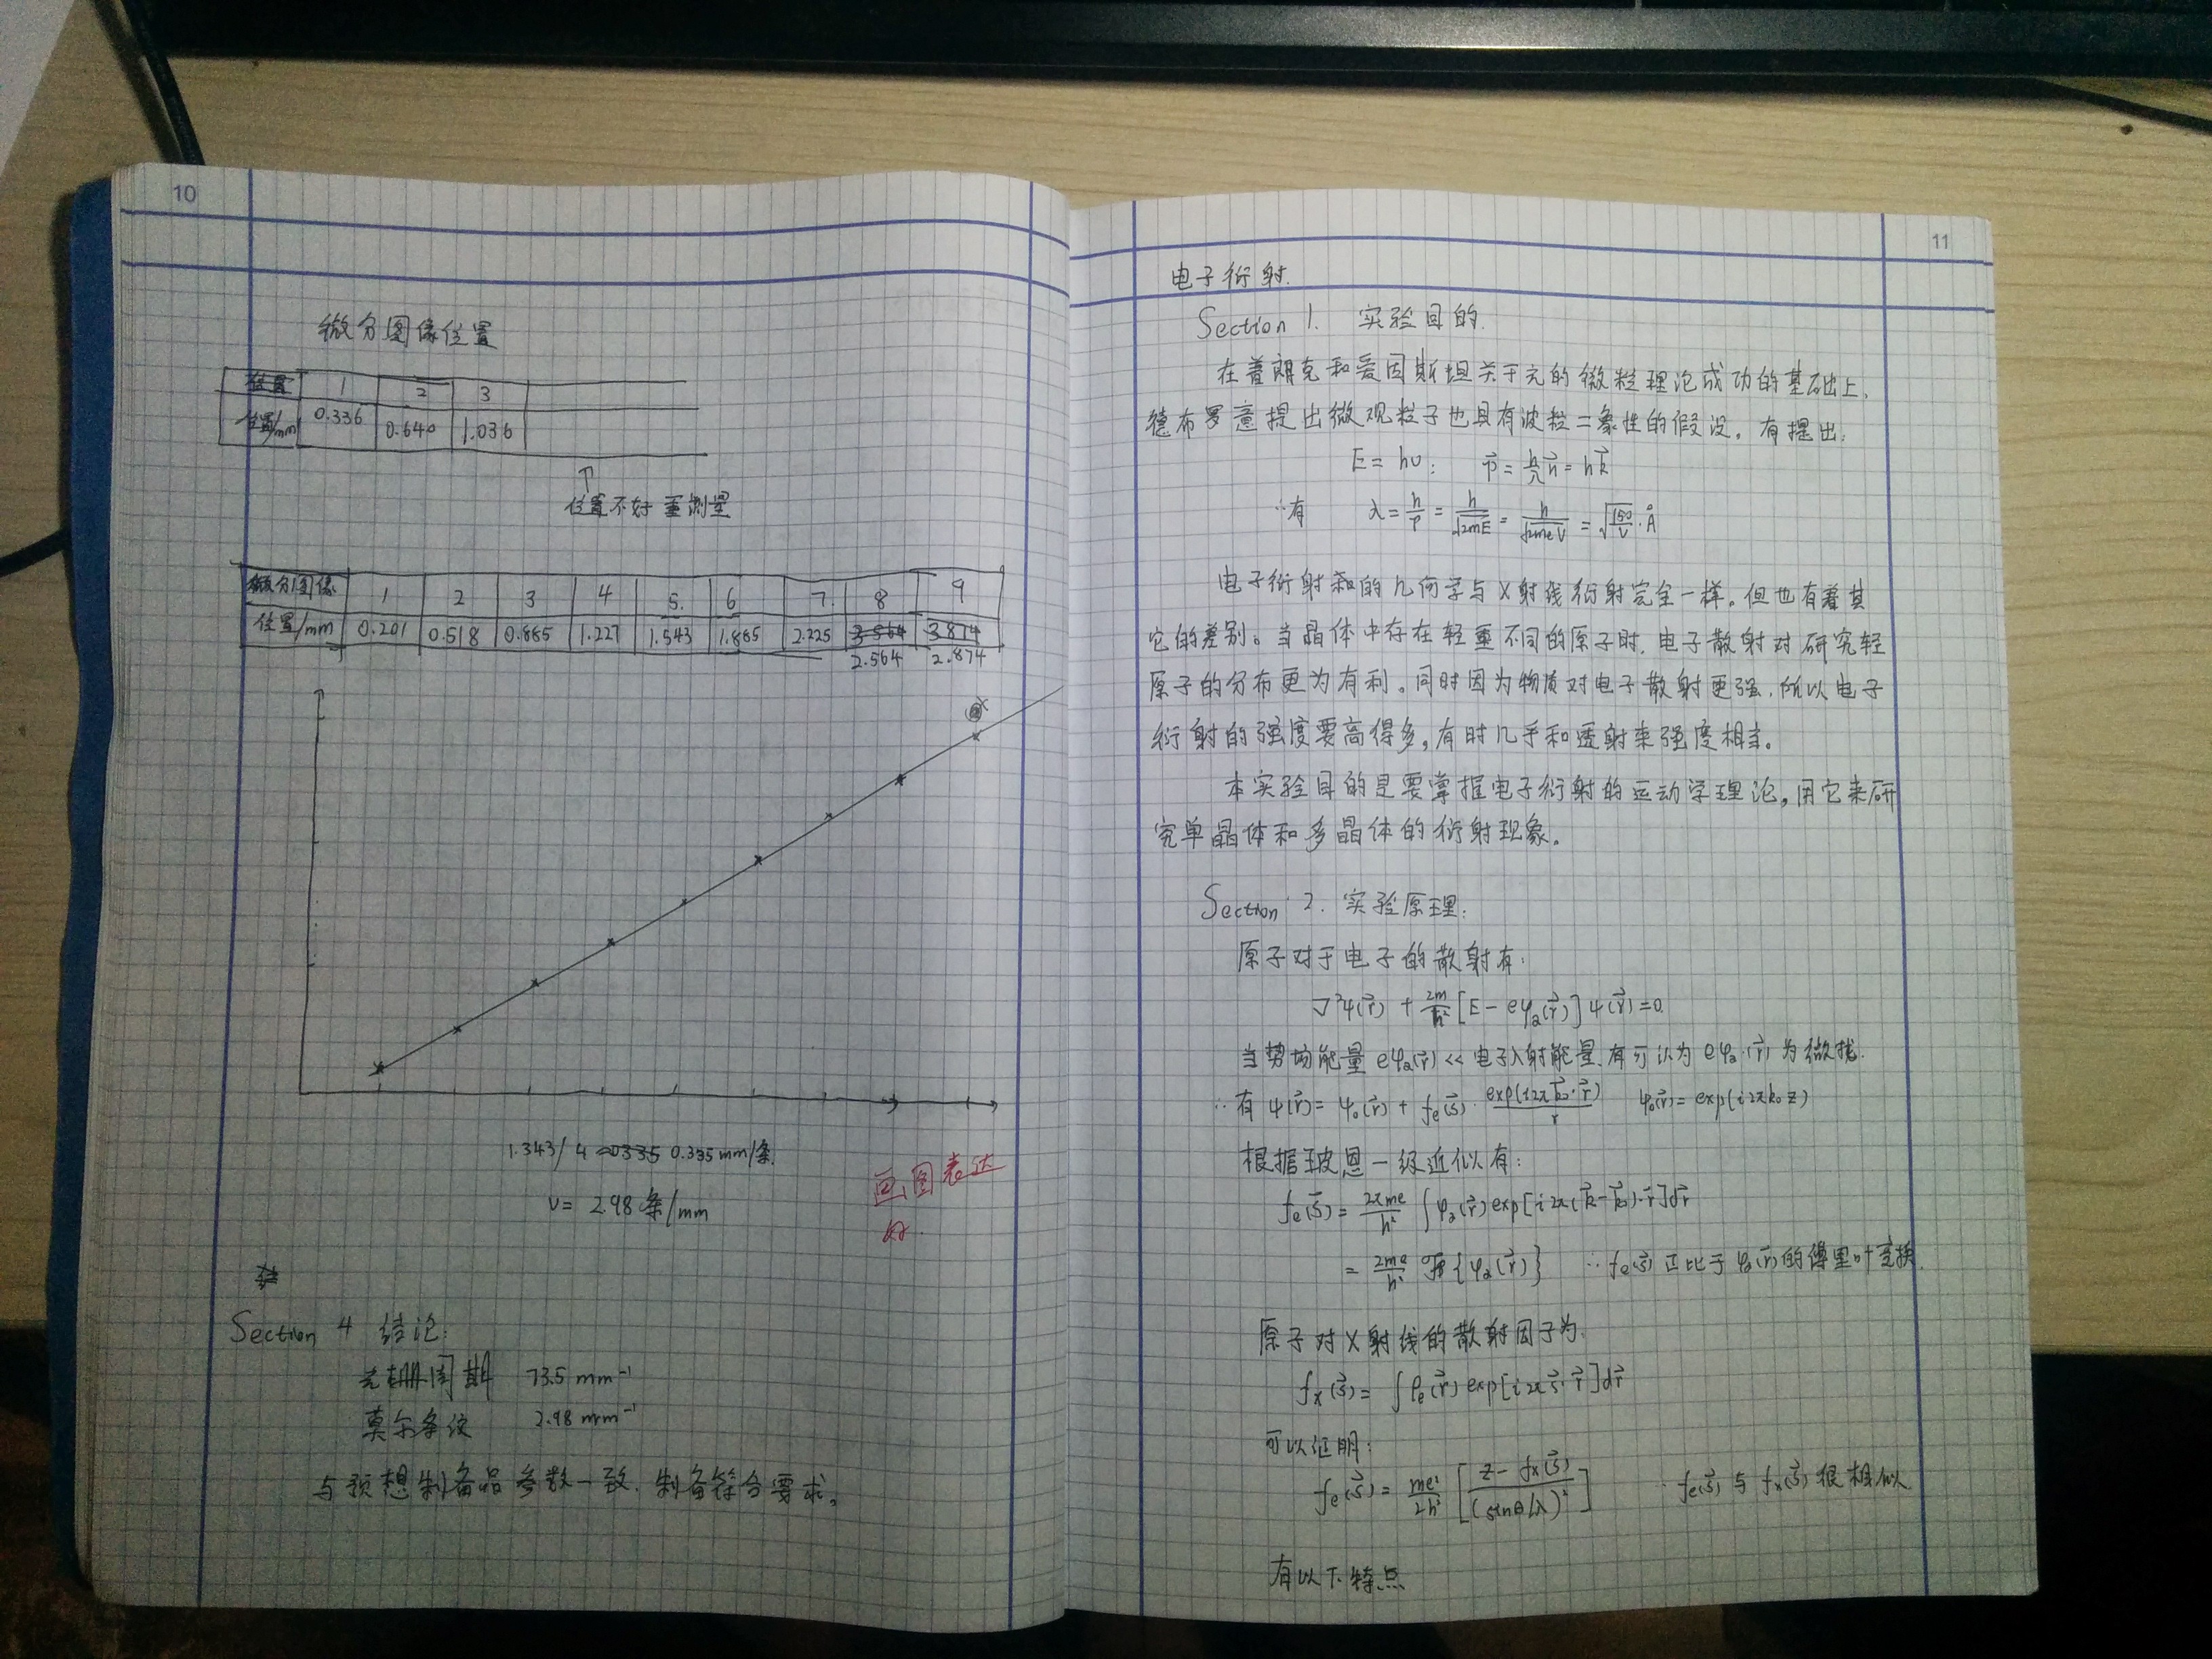 10
微分图像位置
位置 1 2 3
位置/mm 0.336 0.640 1.036
↑
位置不好 重测量
微分图像 1 2 3 4 5. 6 7. 8 9
位置/mm 0.201 0.518 0.885 1.227 1.543 1.885 2.225 3.564 3.874
2.564 2.874
1.343/4 ≈0335 0.335mm/条.
ν= 2.98 条/mm
画图表达
好.
Section 4 结论:
光栅周期 73.5 mm⁻¹
莫尔条纹 2.98 mm⁻¹
与预想制备品参数一致.制备符合要求。
11
电子衍射.
Section 1. 实验目的.
在普朗克和爱因斯坦关于光的微粒理论成功的基础上,
德布罗意提出微观粒子也具有波粒二象性的假设。有提出:
E = hυ: p⃗ = h/λ n⃗ = ħk⃗
∴有 λ = h/p = h/√2mE = h/√2meV = √(150/V)·Å
电子衍射和的几何学与X射线衍射完全一样。但也有着其
它的差别。当晶体中存在轻重不同的原子时,电子散射对研究轻
原子的分布更为有利。同时因为物质对电子散射更强,所以电子
衍射的强度要高得多,有时几乎和透射束强度相当。
本实验目的是要掌握电子衍射的运动学理论,用它来研
究单晶体和多晶体的衍射现象。
Section 2. 实验原理:
原子对于电子的散射有:
∇²ψ(r⃗) + 2m/ħ² [E - eφa(r⃗)] ψ(r⃗) = 0
当势场能量 eφa(r⃗) << 电子入射能量.有可认为 eφa(r⃗) 为微扰.
∴有 ψ(r⃗) = ψ₀(r⃗) + fe(s⃗)· exp(i2πk⃗₀·r⃗)/r ψ₀(r⃗) = exp(i2πk₀z)
根据玻恩一级近似有:
fe(s⃗) = 2πme/h² ∫φa(r⃗) exp[i2π(k⃗-k⃗₀)·r⃗]dr⃗
= 2me/h² ℱ{φa(r⃗)} ∴ fe(s⃗)正比于φa(r⃗)的傅里叶变换.
原子对X射线的散射因子为.
fx(s⃗) = ∫ρe(r⃗) exp[i2πs⃗·r⃗]dr⃗
可以证明:
fe(s⃗) = me²/2h² [(z - fx(s⃗))/(sinθ/λ)²] ∴ fe(s⃗)与fx(s⃗)很相似
有以下特点